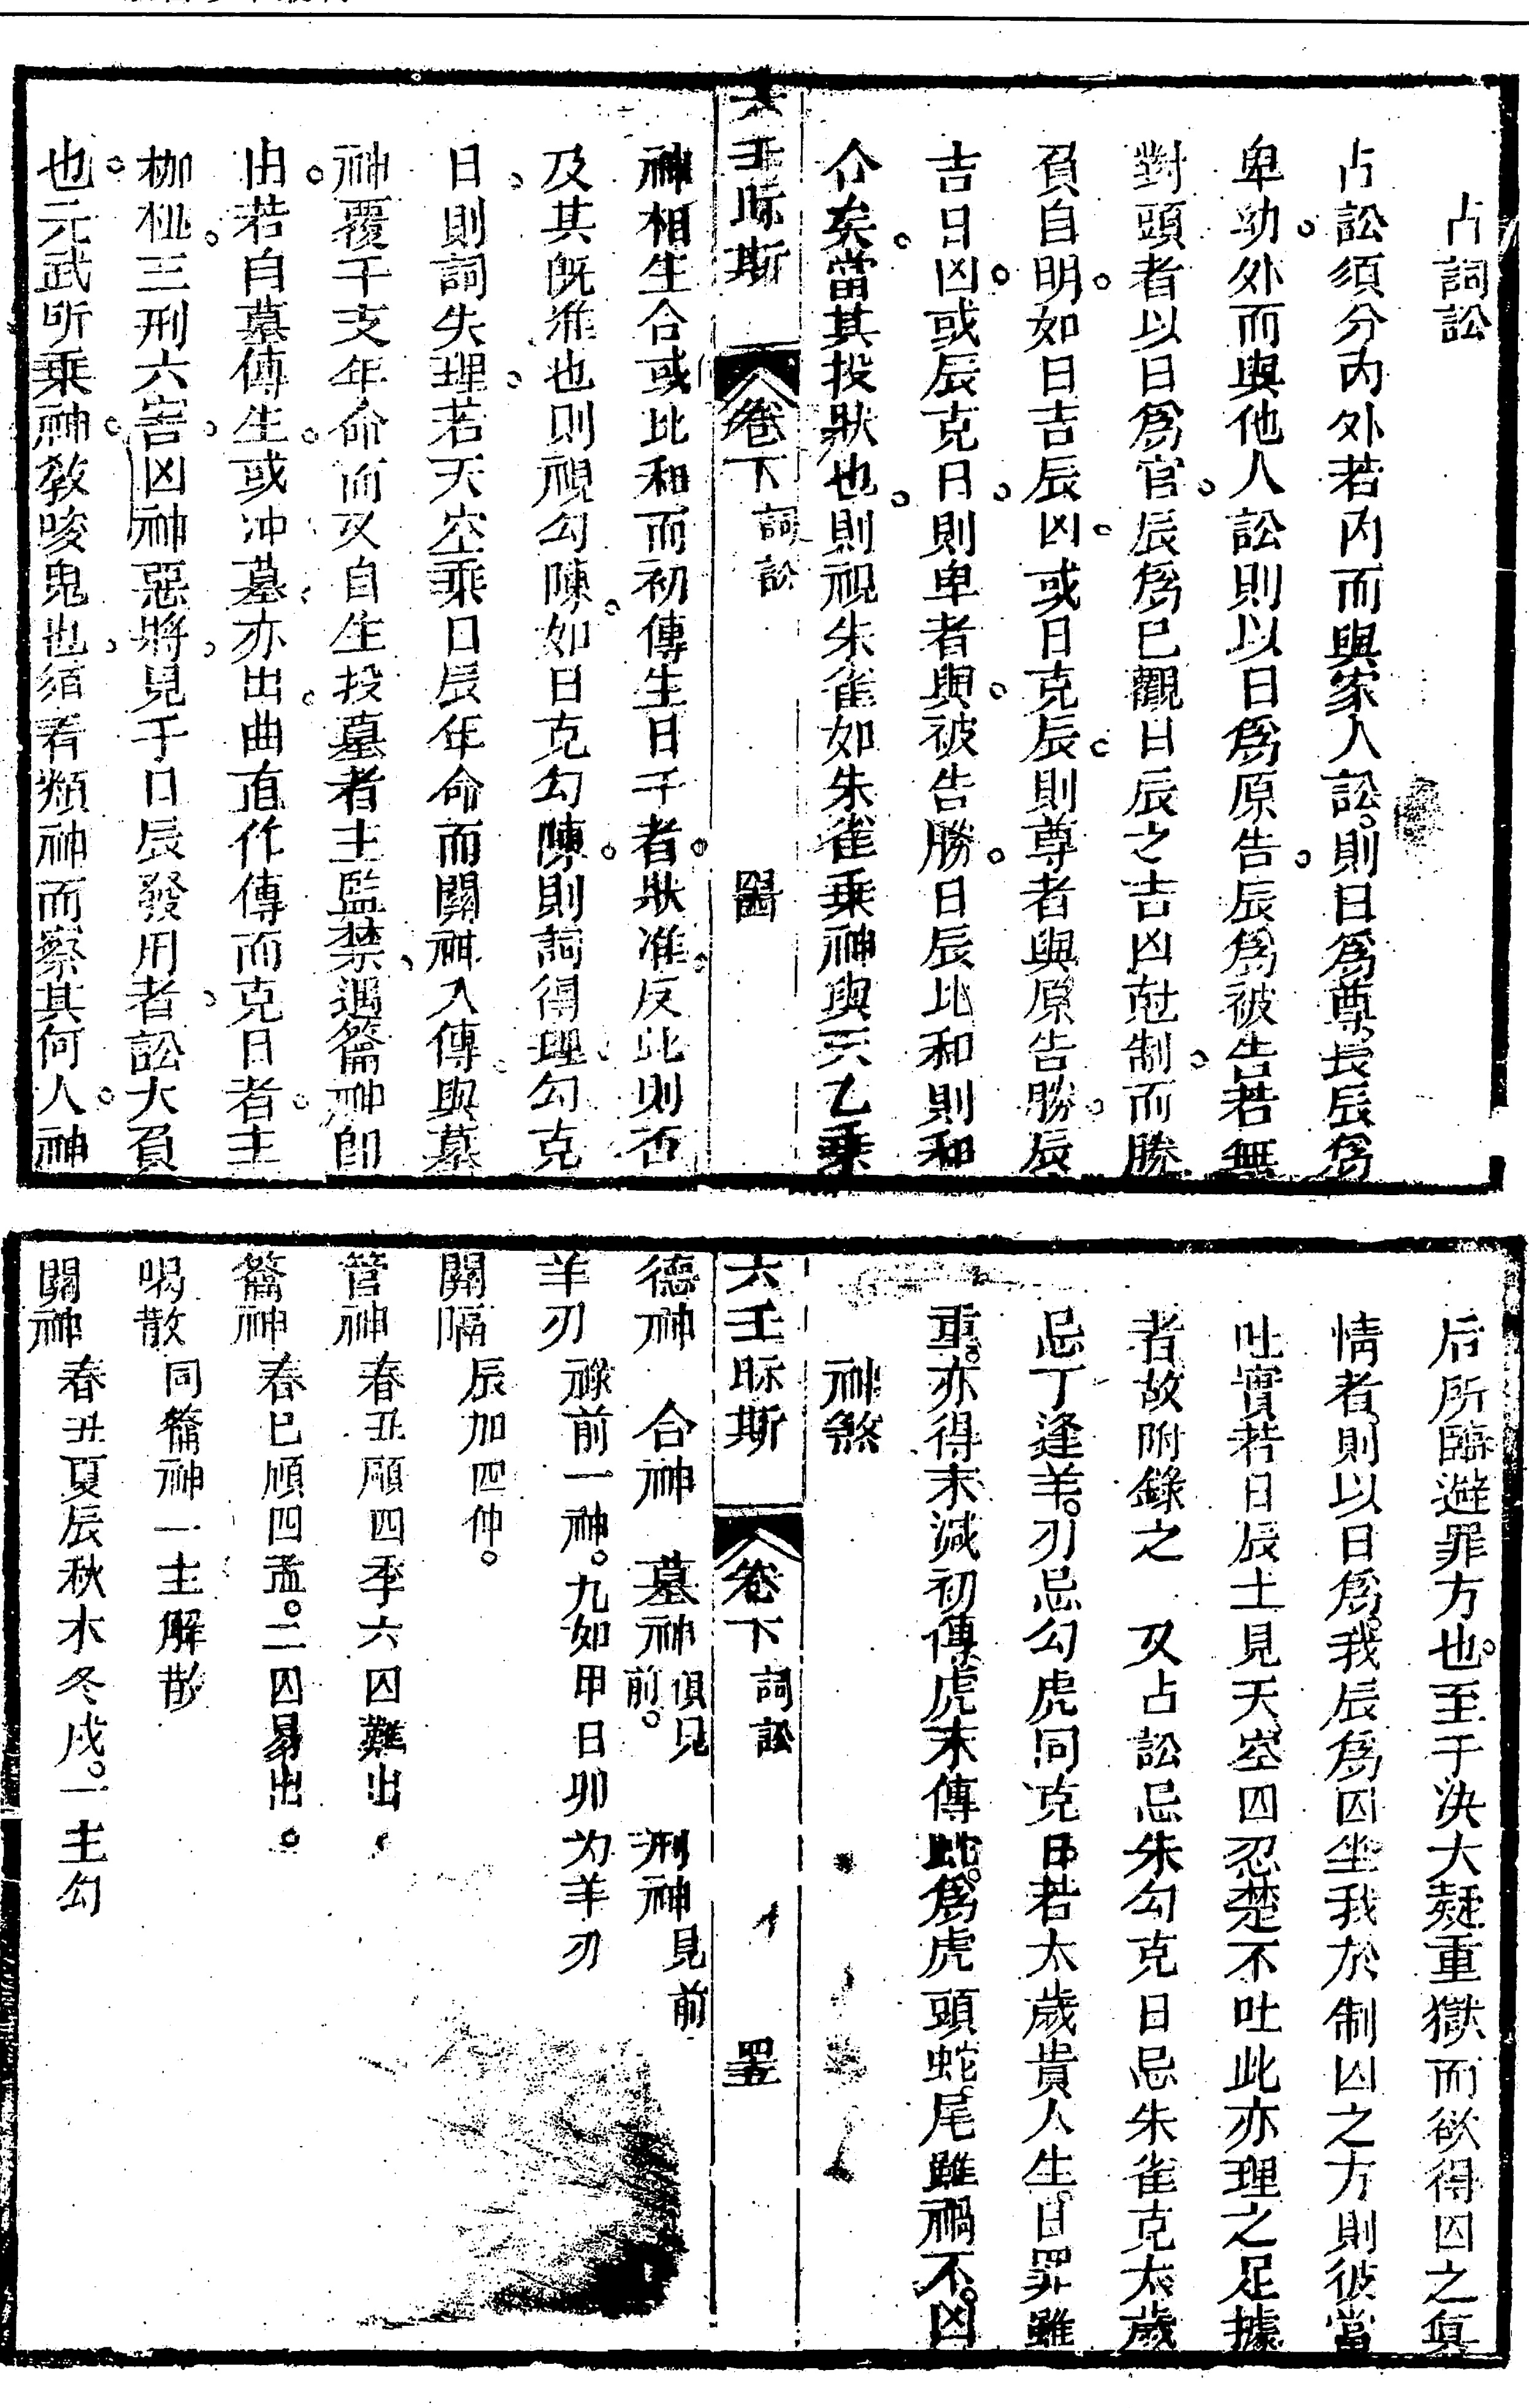 占詞訟
占訟須分內外若內而與家人訟。則日爲尊長辰爲
卑幼。外而與他人訟則以日爲原告。辰爲被告若無
對頭者以日爲官。辰爲已觀日辰之吉凶尅制。而勝
負自明。如日吉辰凶。或日克辰。則尊者與原告勝。辰
吉日凶。或辰克日。則卑者與。被告勝。日辰比和則和
仚矣。當其投狀也。則視朱雀如朱雀乗神與天乙乗
六壬眎斯 卷下 詞訟 四十四
神相生合或比和而初傳生日干者。狀准。反此則否
及其旣准也則視勾陳。如日克勾陳。則詞得理。勾克
日。則詞失理。若天空乘日辰年命而關神入傳。與墓
神覆干支年命而又自生投墓者主監禁、遇籥神卽
出。若自墓傳生。或冲墓亦出。曲直作傳而克日者。主
枷杻。三刑六害。凶神惡將。見于日辰發用者。訟大負
也。元武所乗神。教唆鬼也。須看類神而察其何人。神
后所臨避罪方也。至于決大疑重獄而欲得囚之眞
情者則以日爲我辰爲囚坐我於制囚之方則彼當
吐實若日辰土見天空囚忍楚不吐此亦理之足據
者故附錄之 又占訟忌朱勾克日忌朱雀克太歲
忌丁逢羊。刃忌勾虎同克日若太歲貴人生。日罪雖
重。亦得末減初傳虎末傳蛇。爲虎頭蛇尾雖禍不。凶
神煞
六壬眎斯 卷下 詞訟 四十五
德神 合神 墓神 俱見前。 刑神 見前
羊刃 祿前一神。九如甲日卯为羊刃
關隔 辰加四仲。
管神 春丑順四季六囚難出
籥神 春巳順四孟。二囚易出。
喝散 同籥神一主解散
關神 春丑夏辰秋木冬戌。一主勾